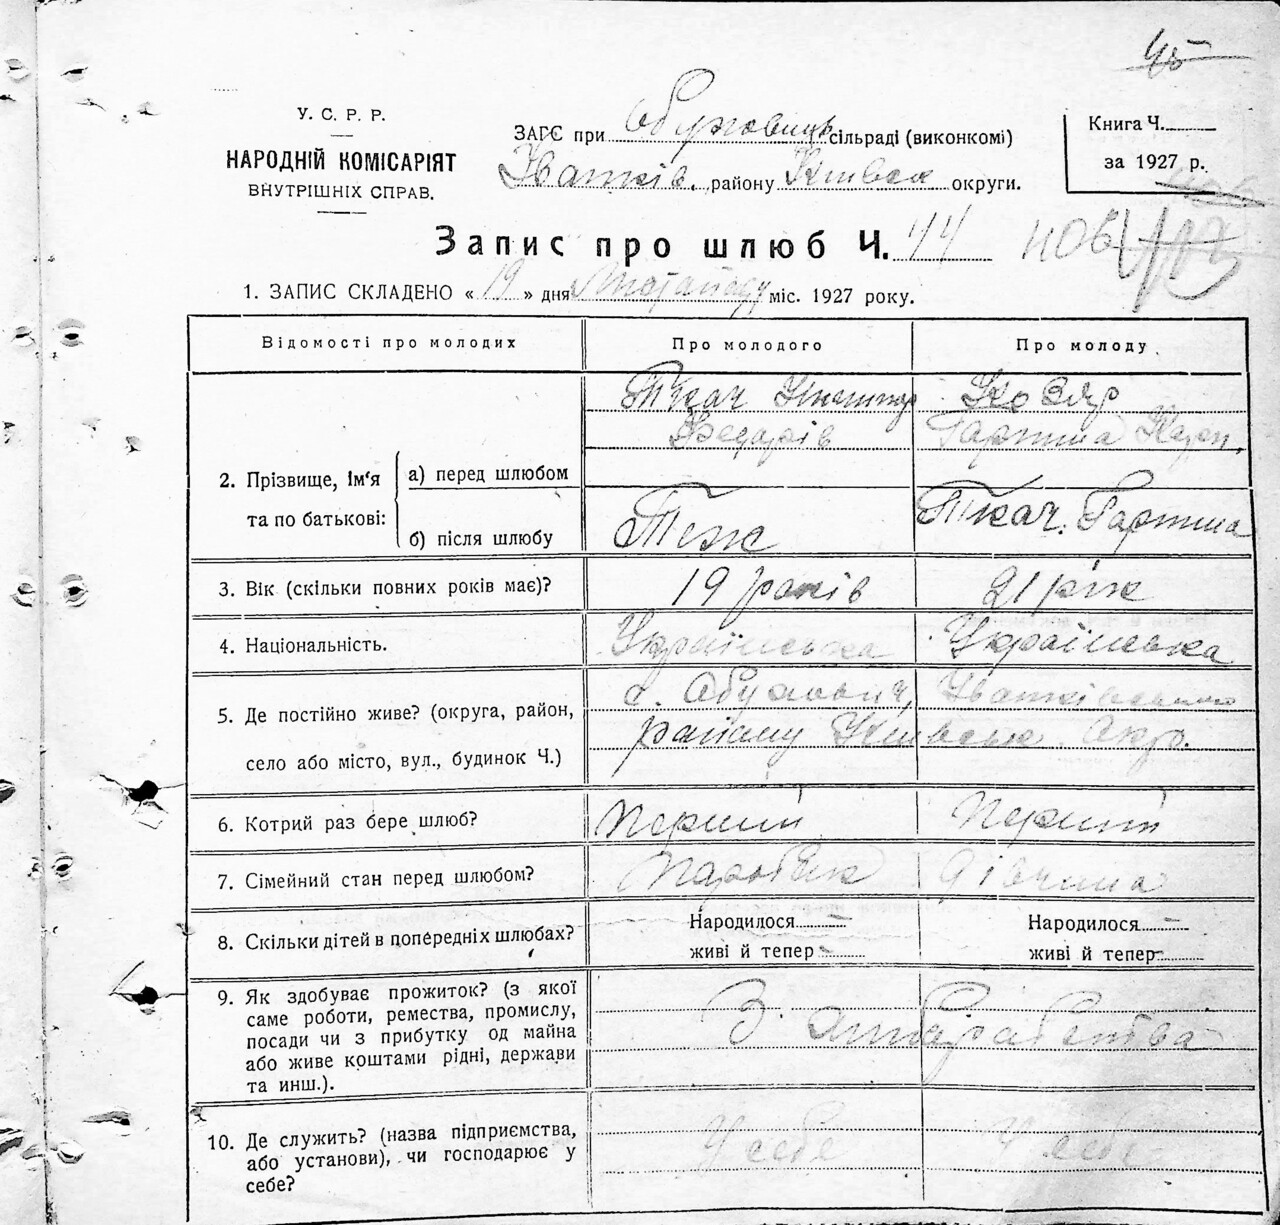 45
У. С. Р. Р.
НАРОДНІЙ КОМІСАРІЯТ
ВНУТРІШНІХ СПРАВ.
ЗАГС при Обуховиць сільраді (виконкомі)
Іванків. району Київськ округи.
Книга Ч.
за 1927 р.
Запис про шлюб Ч. 44
1. ЗАПИС СКЛАДЕНО « 19 » дня міс. 1927 року.
Відомості про молодих
Про молодого
Про молоду
2. Прізвище, ім'я та по батькові:
а) перед шлюбом
Ткач
Федорів
Козяр
Гартина
б) після шлюбу
Теж
Ткач. Гартина
3. Вік (скільки повних років має)?
19 років
21 рік
4. Національність.
Українська
Українська
5. Де постійно живе? (округа, район,
село або місто, вул., будинок Ч.)
с. Обухович, Іванківського
району Київськ. Окр.
6. Котрий раз бере шлюб?
Перший
Перший
7. Сімейний стан перед шлюбом?
Паробок
Дівчина
8. Скільки дітей в попередніх шлюбах?
Народилося —
живі й тепер —
Народилося —
живі й тепер —
9. Як здобуває прожиток? (з якої
саме роботи, ремества, промислу,
посади чи з прибутку од майна
або живе коштами рідні, держави
та инш.).
З хліборобства
10. Де служить? (назва підприємства,
або установи), чи господарює у
себе?
У себе
У себе